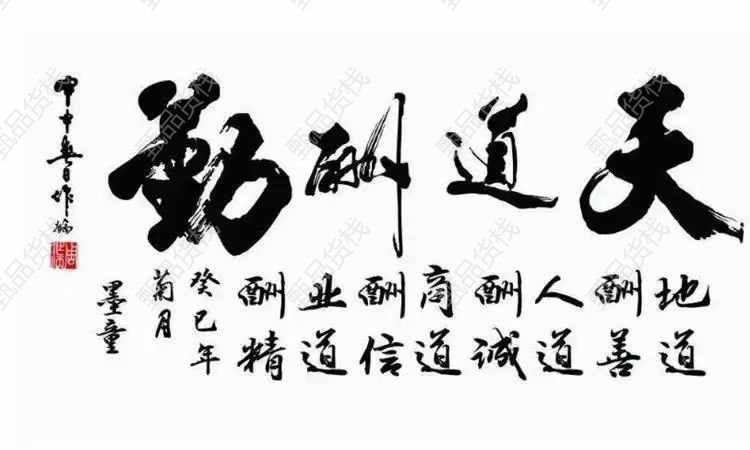 天道酬勤
地道酬善
人道酬诚
商道酬信
业道酬精
癸巳年
菊月
墨童
甄品货栈